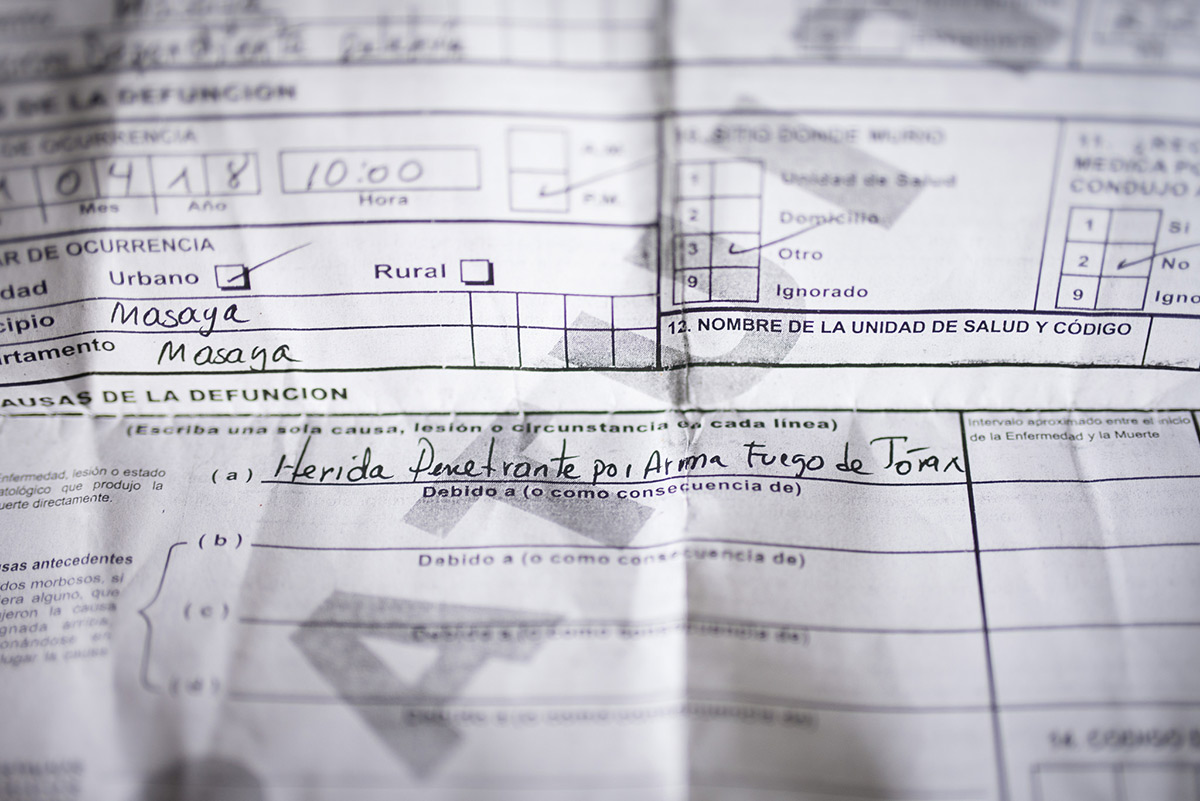 DE LA DEFUNCION
DE OCURRENCIA
0 4 1 8
10:00
Mes
Año
Hora
P.M.
SITIO DONDE MURIO
1 Unidad de Salud
2 Domicilio
3 Otro
9 Ignorado
11.
CONDUJO
1 Si
2 No
9
AR DE OCURRENCIA
Urbano
Rural
Masaya
Masaya
12. NOMBRE DE LA UNIDAD DE SALUD Y CÓDIGO
AUSAS DE LA DEFUNCION
(Escriba una sola causa, lesión o circunstancia en cada línea)
Intervalo aproximado entre el inicio
de la Enfermedad y la Muerte
Enfermedad, lesión o estado
atológico que produjo la
uerte directamente.
(a) Herida Penetrante por Arma Fuego de Tórax
Debido a (o como consecuencia de)
(b)
Debido a (o como consecuencia de)
sas antecedentes
dos morbosos, si
era alguno, que
ujeron la causa
gnada arriba,
onándose en
lugar la causa
(c)
Debido a (o como consecuencia de)
(d)